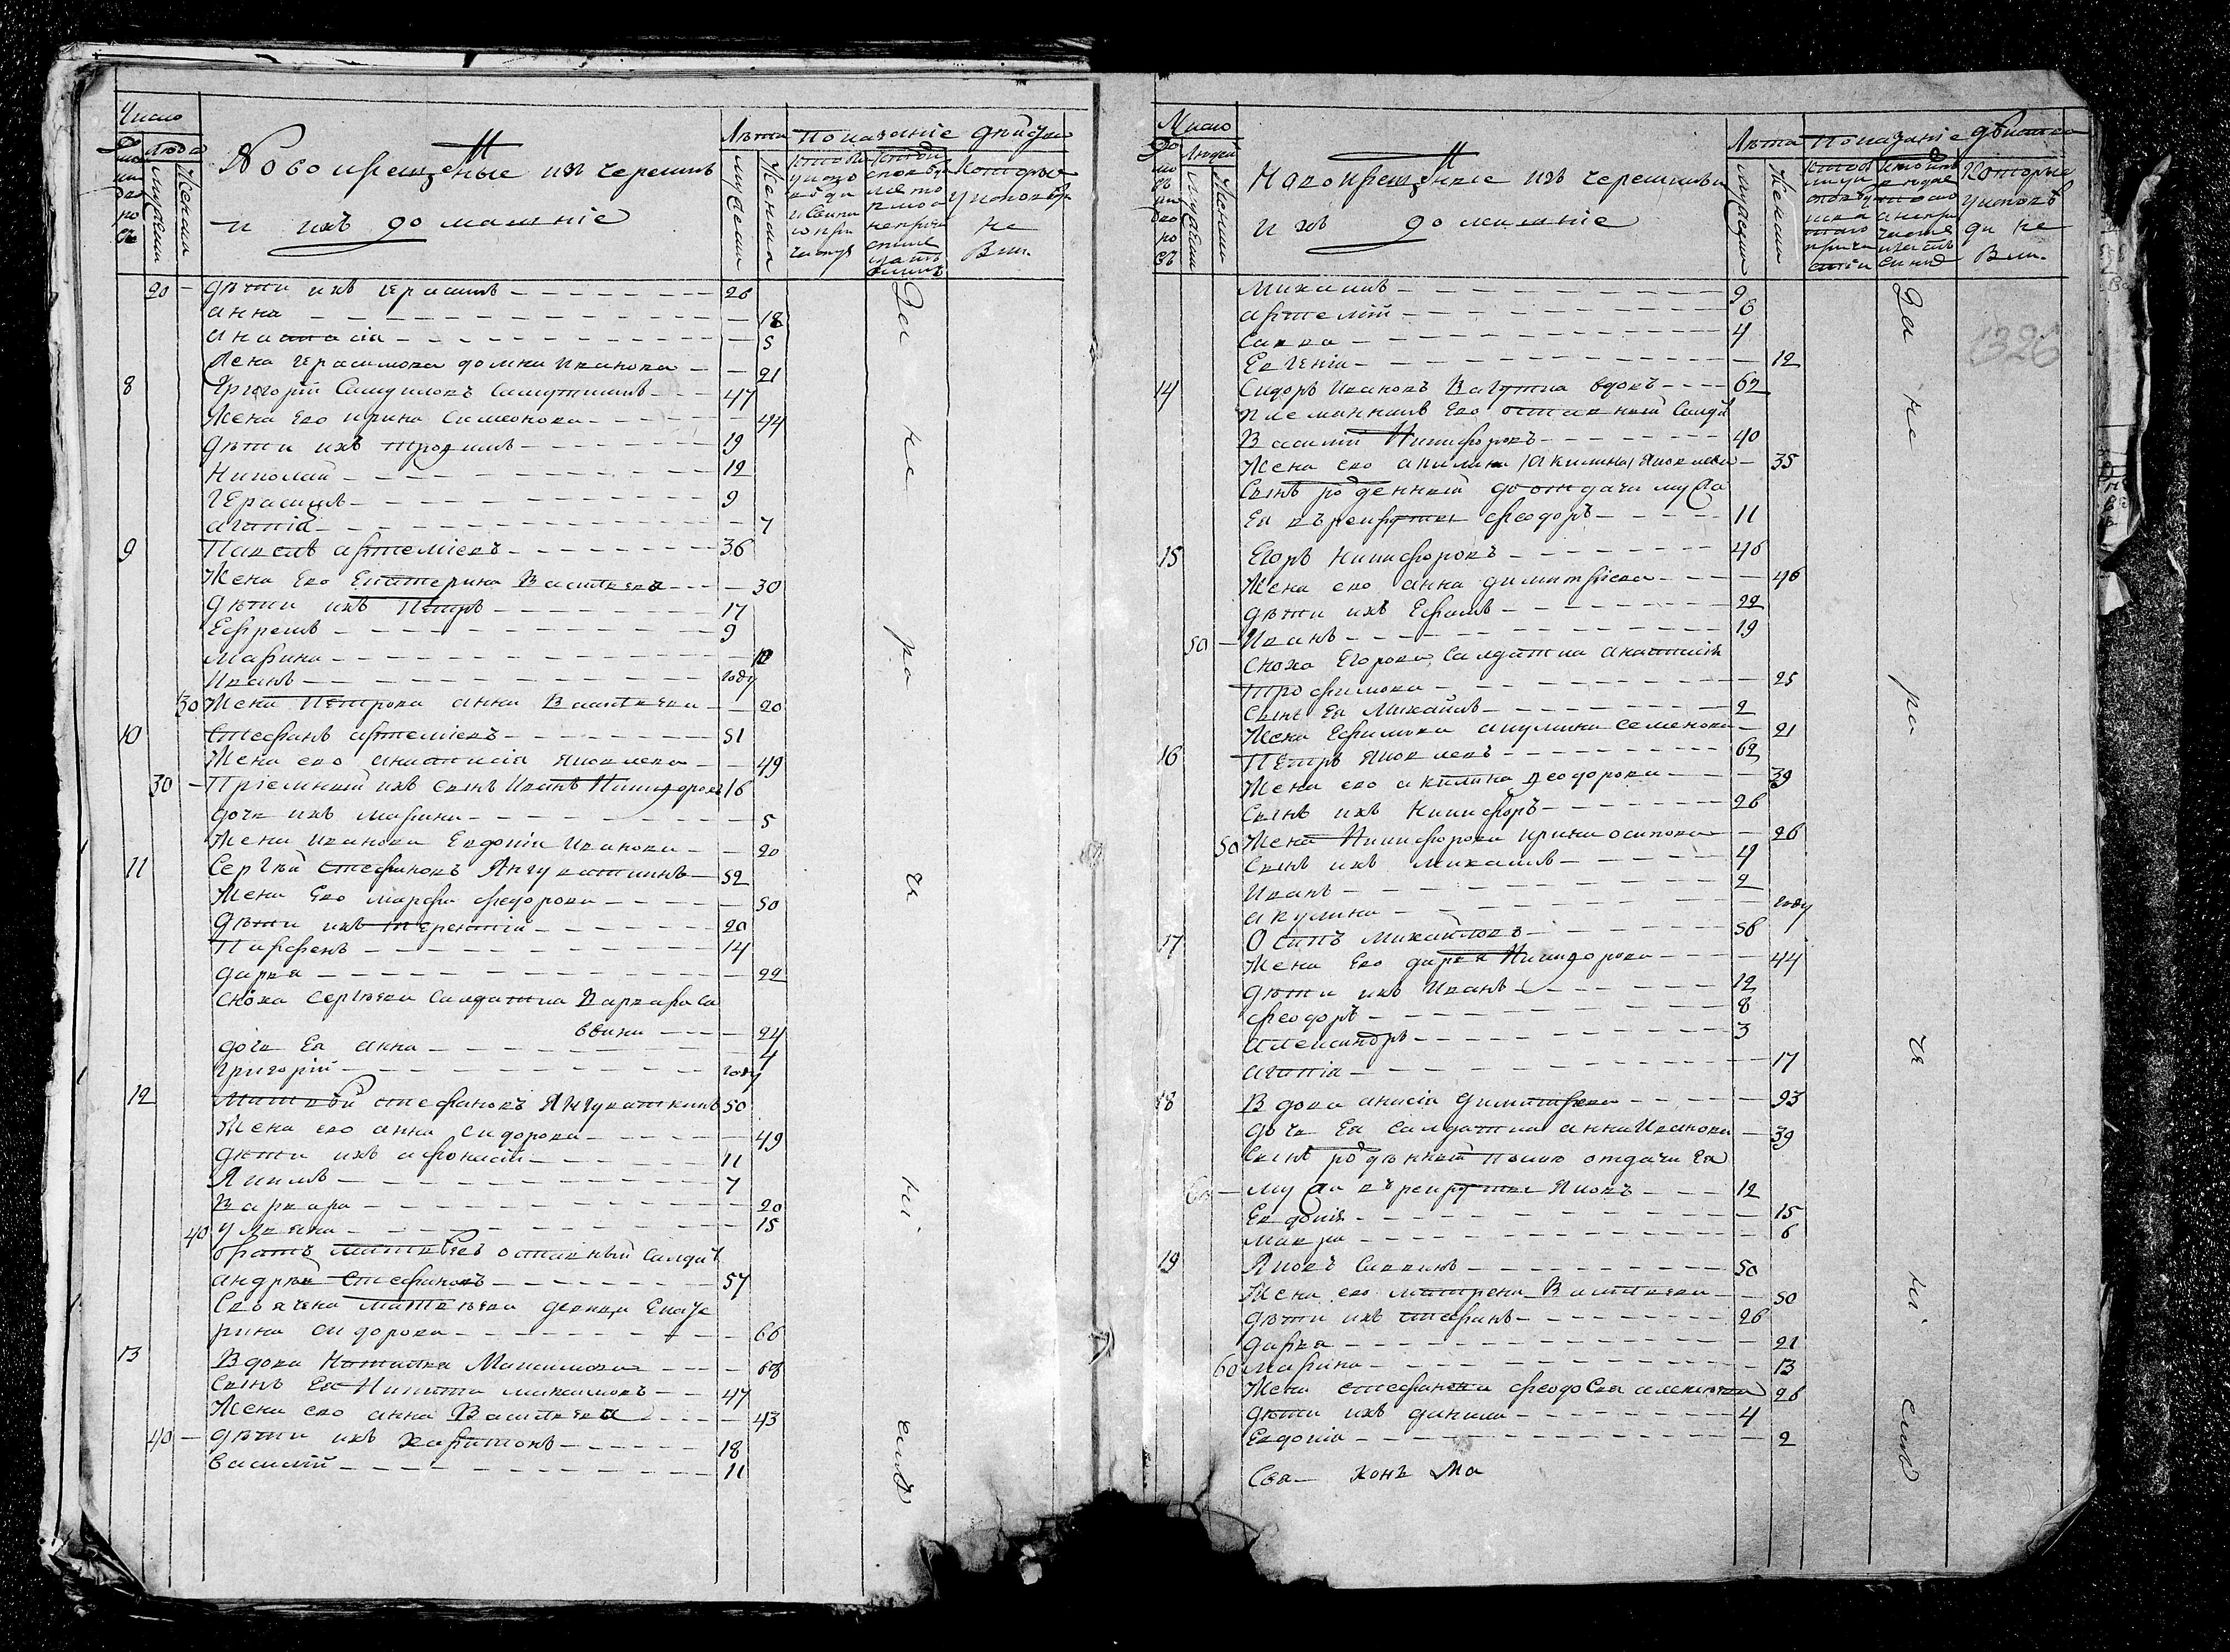 Число
Лѣта Показаніе дѣйств
Людей
Новокрещеные изъ черемисъ
и ихъ домашніе
мужеска
женска
Которые
у исповѣди
не
были
20 — Дѣти ихъ Герасимъ — 26
Анна — 18
Анастасія — 5
Жена Герасимова Домна Иванова — 21
8 Григорій Самуиловъ — 47
Жена Его Ирина Симеонова — 44
Дѣти ихъ Трофимъ — 19
Николай — 12
Герасимъ — 9
Агапія — 7
9 Павелъ Артеміевъ — 36
Жена Его Екатерина Васильева — 30
Дѣти ихъ Петръ — 17
Ефремъ — 9
Марина — 12
Иванъ — году
30 Жена Петрова Анна Васильева — 20
10 Стефанъ Артеміевъ — 51
Жена его Анастасія Яковлева — 49
30 — Пріемный ихъ сынъ Иванъ Никифоровъ 16
Дочь ихъ Марина — 5
Жена Иванова Евдокія Иванова — 20
11 Сергѣй Стефановъ — 52
Жена Его Марфа Федорова — 50
Дѣти ихъ Терентій — 20
Парфенъ — 14
Дарья — 22
Сноха Сергѣева Салдатка Варвара Са
ввина — 24
Дочь Ея Анна — 4
Григорій — году
12 Матвѣй Стефановъ — 50
Жена его Анна Сидорова — 49
Дѣти ихъ Афонасій — 11
Якимъ — 7
Варвара — 20
40 Ульяна — 15
Братъ Матвѣевъ отставный Салдатъ
Андрей Стефановъ — 57
Своячена Матвѣева девица Екате
рина Сидорова — 66
13 Вдова Наталья Максимова — 68
Сынъ Ея Никита Михаиловъ — 47
Жена его Анна Васильева — 43
40 — Дѣти ихъ Харитонъ — 18
Василій — 11
За не ра че ні емъ
Число
Лѣта Показаніе дѣйства
Людей
Новокрещеные изъ черемисъ
и ихъ домашніе
мужеска
женска
Которые
у исповѣ
ди не
были
1326
Михаилъ — 9
Артемій — 6
Савва — 4
Евгенія — 12
14 Сидоръ Ивановъ вдовъ — 62
Племянникъ Его отставный Салда
Василій Никифоровъ — 40
Жена его Акилина (Акилина) Яковлева — 35
Сынъ рожденный до отдачи мужа
Ея въ рекруты Феодоръ — 11
15 Егоръ Никифоровъ — 46
Жена его Анна Димитріева — 46
Дѣти ихъ Ефимъ — 22
50 — Иванъ — 19
Сноха Егорова Салдатка Анастасія
Трофимова — 25
Сынъ Ея Михаилъ — 2
Жена Ефимова Акулина Семенова — 21
16 Петръ Яковлевъ — 62
Жена его Акилина Феодорова — 39
Сынъ ихъ Никифоръ — 26
50 Жена Никифорова Ирина Осипова — 26
Сынъ ихъ Михаилъ — 4
Иванъ — 2
Акулина — году
17 Осипъ Михаиловъ — 56
Жена Его Дарья Никифорова — 44
Дѣти ихъ Иванъ — 12
Феодоръ — 8
Александръ — 3
Агапія — 17
18 Вдова Анисія Димитріева — 93
Дочь Ея Салдатка Анна Иванова — 39
Сынъ рожденный после отдачи Ея
60 — мужа въ рекруты Яковъ — 12
Евдокія — 15
Мавра — 6
19 Яковъ Саввинъ — 50
Жена его Матрена Васильева — 50
Дѣти ихъ Стефанъ — 26
Дарья — 21
60 Марина — 13
Жена Стефанова Феодосья Алексѣева 26
Дѣти ихъ Данила — 4
Евдокія — 2
За не ра че ні емъ
Свя— конъ Ма